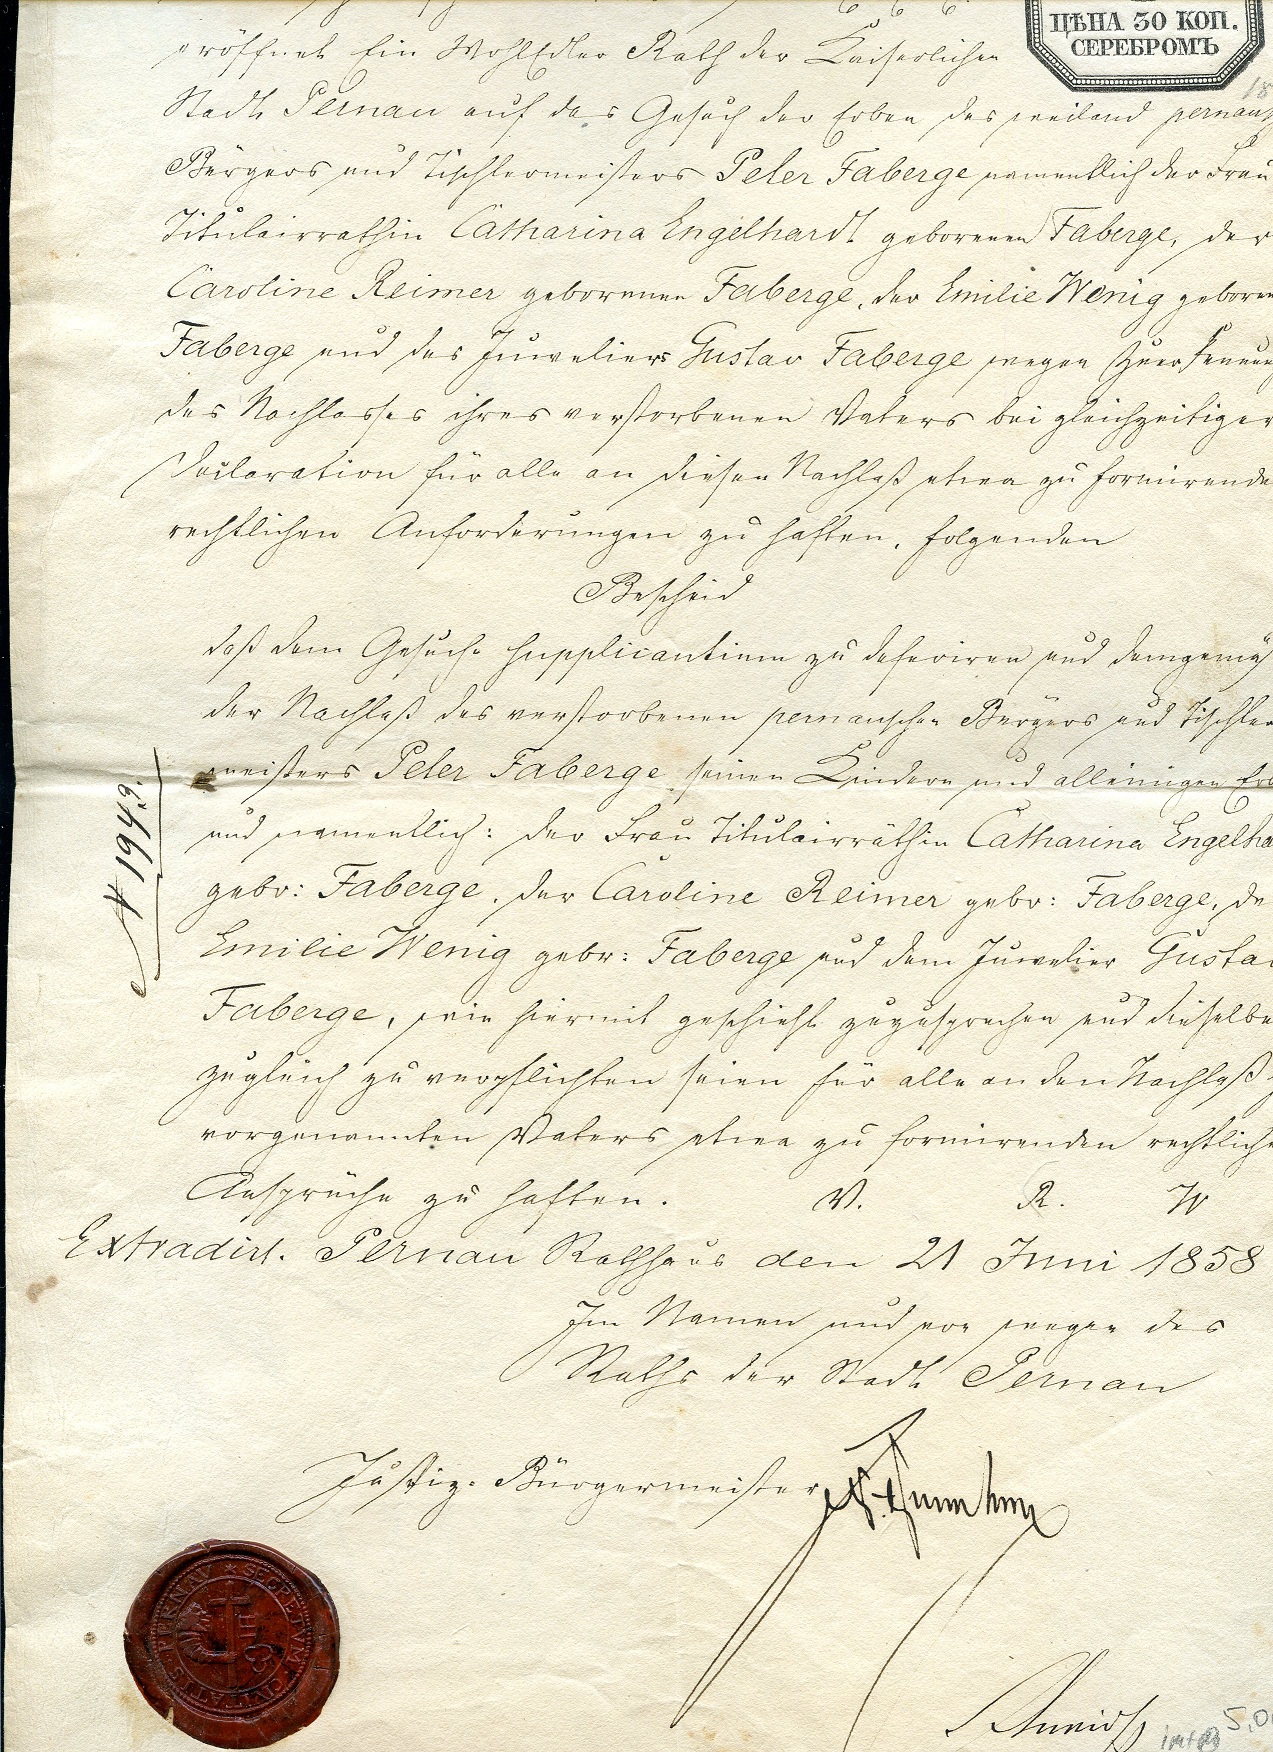 ЦѢНА 30 КОП.
СЕРЕБРОМЪ
eröffnet Ein WohlEdler Rath der Kaiserlichen
Stadt Pernau auf das Gesuch der Erben des weiland pernausch
Bürgers und Tischlermeisters Peter Faberge namentlich der Frau
Titulairräthin Catharina Engelhardt geborenen Faberge, der
Caroline Reimer geborenen Faberge, der Emilie Wenig geboren
Faberge und des Juweliers Gustav Faberge wegen Zuerkennung
des Nachlasses ihres verstorbenen Vaters bei gleichzeitiger
Declaration für alle an diesen Nachlaß etwa zu formirende
rechtlichen Anforderungen zu haften, folgenden
Bescheid
daß dem Gesuche Supplicantium zu deferiren und demgemäß
der Nachlaß des verstorbenen pernauschen Bürgers und Tischler
meisters Peter Faberge seinen Kindern und alleinigen Erb
und namentlich: der Frau Titulairräthin Catharina Engelha
gebr: Faberge, der Caroline Reimer gebr: Faberge, de
Emilie Wenig gebr: Faberge und dem Juwelier Gustav
Faberge, wie hiermit geschieht zuzusprechen und dieselbe
zugleich zu verpflichten seien für alle an den Nachlaß
vorgenannten Vaters etwa zu formirenden rechtliche
Ansprüche zu haften. V. R. W
Extradirt. Pernau Rathhaus den 21 Juni 1858
Im Namen und von wegen des
Raths der Stadt Pernau
Justiz-Bürgermeister
N 1949.
SECRETVM CIVITATIS PERNAV
Schmidt
5,0